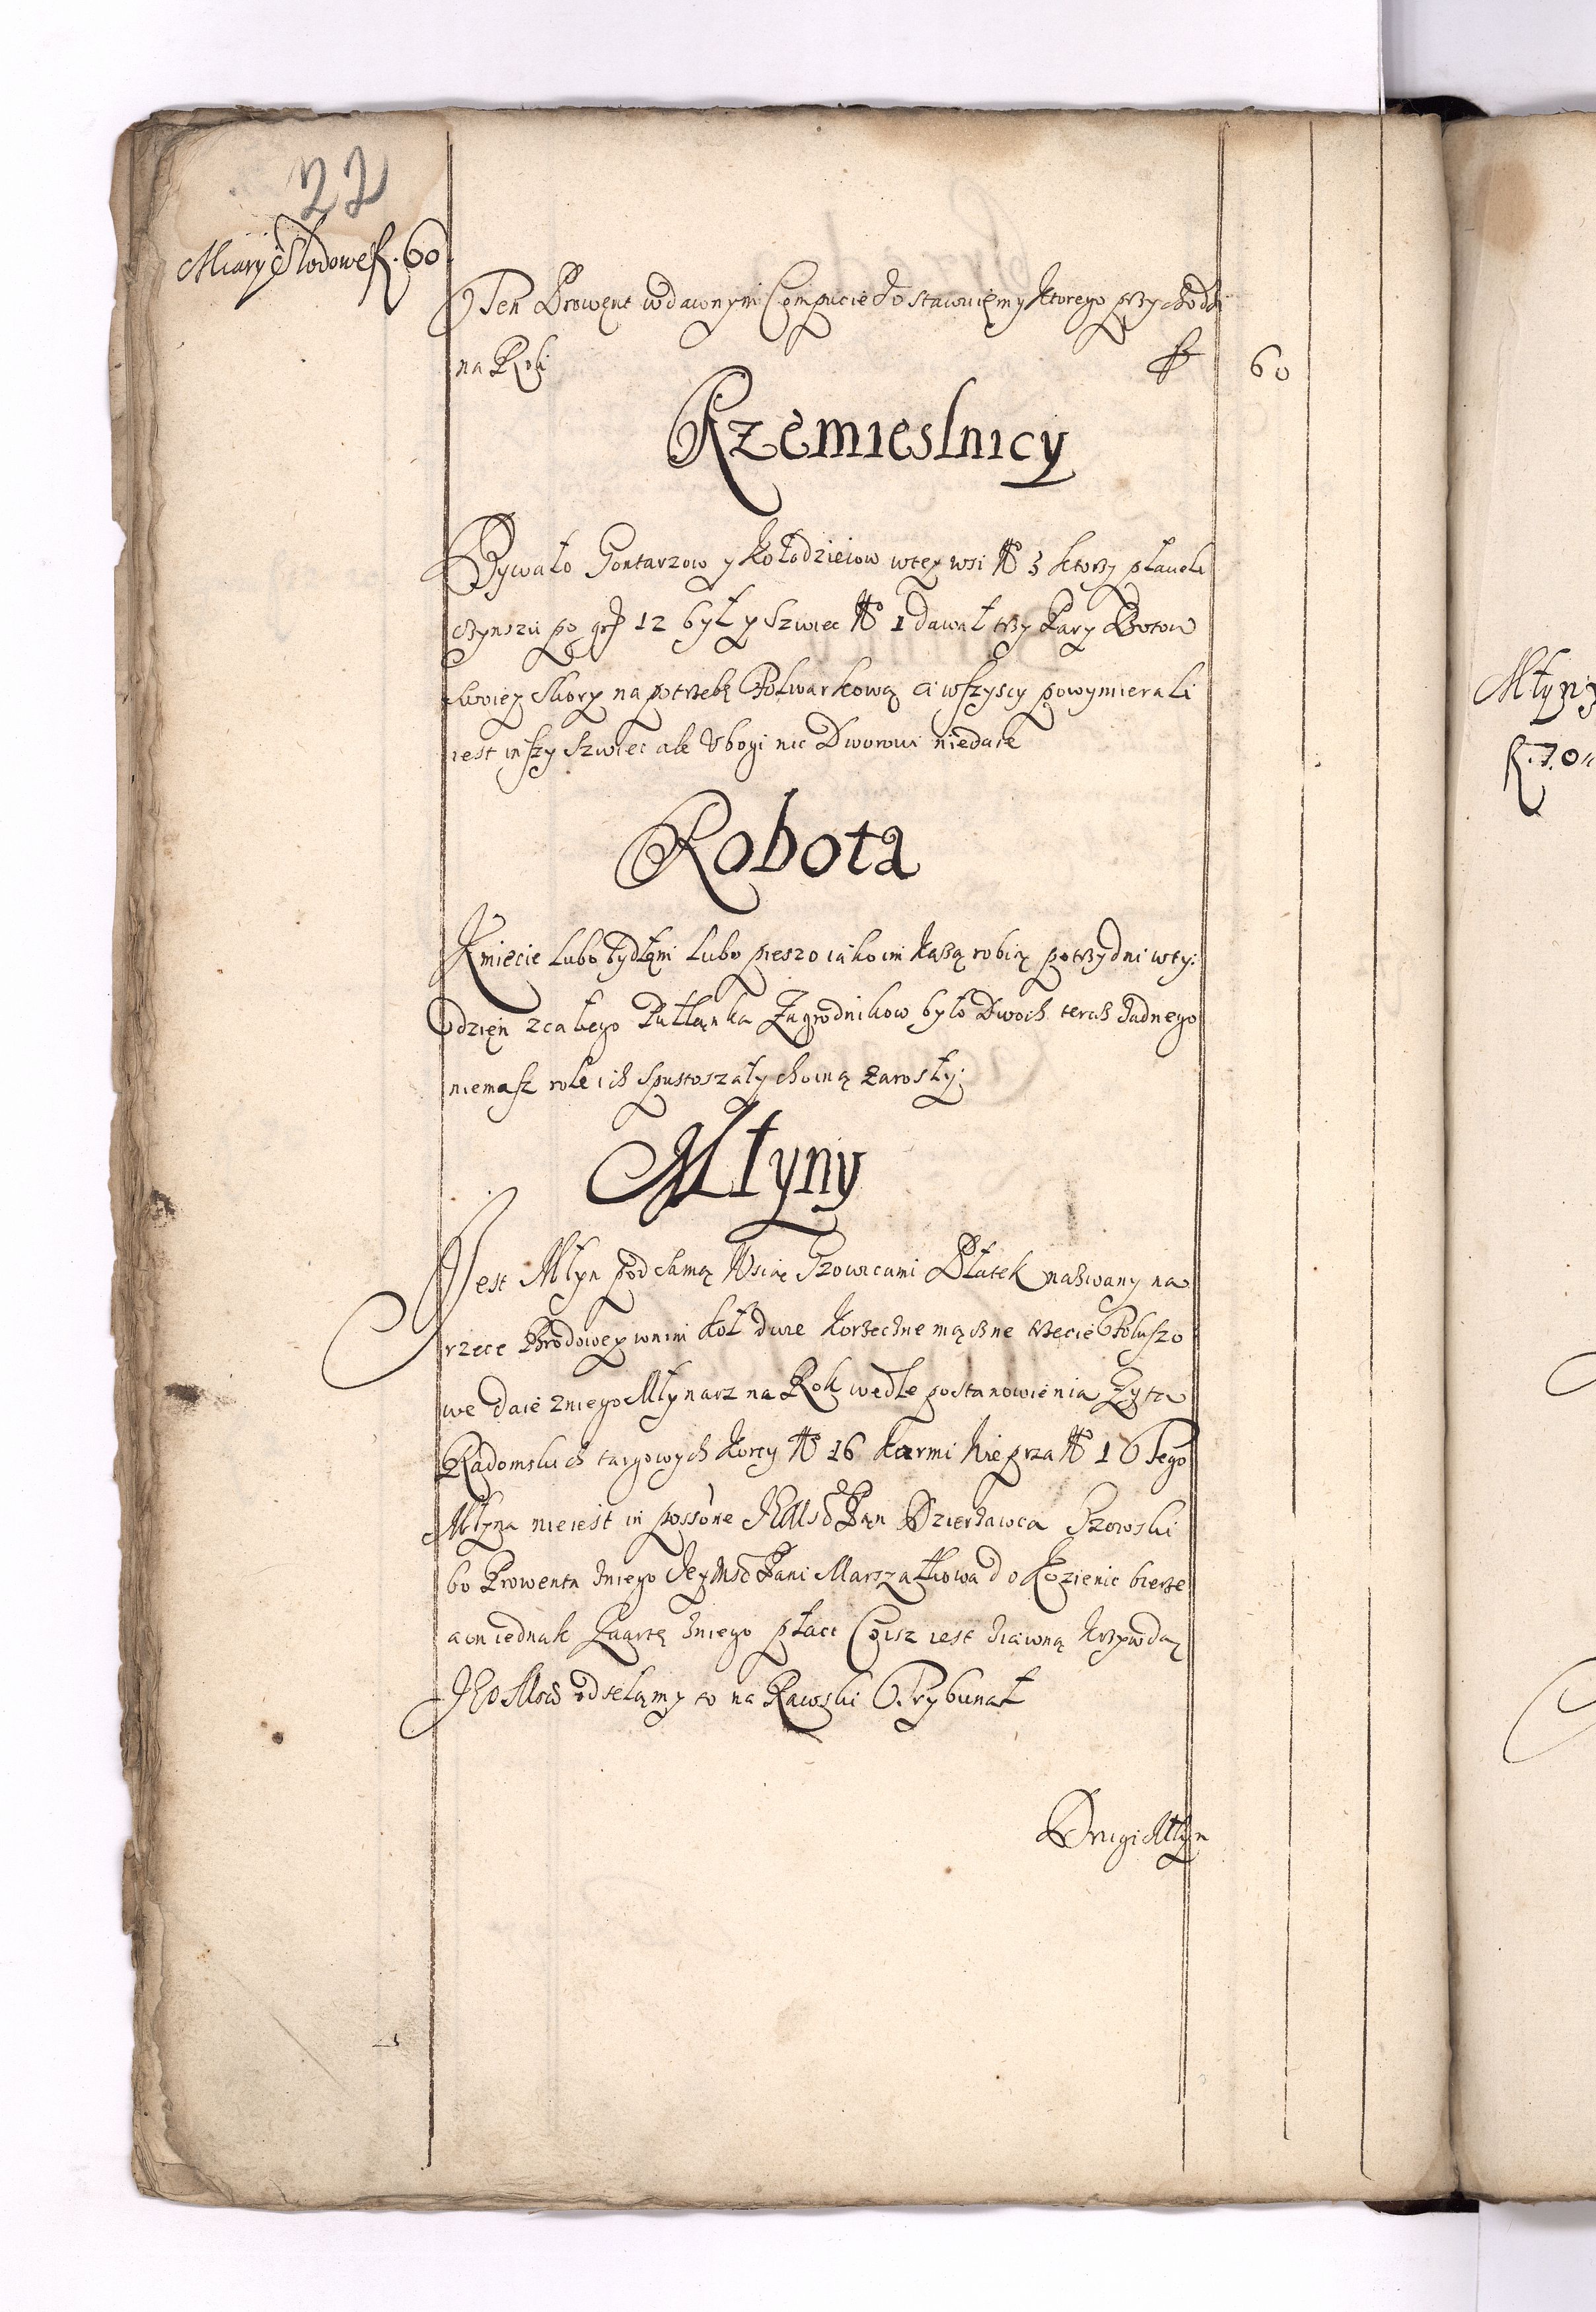 22
Miary Słodowe f. 60
Ten Prowent w dawnym Compucie zostawuięmy ktorego przychodzi
na Rok f 60
Rzemieslnicy
Bywało Gontarzow y Kołodzieiow wtey wsi No 3 ktorzy płacieli
czynszu po gr 12 był y Szwiec No 1 dawał trzy Pary Botow
swoiey skory na potrzebę Folwarkową ci wszyscy powymierali
iest inszy Szwiec ale Vbogi nic Dworowi niedaie
Robota
Kmiecie lubo bydłęm lubo pieszo iako im każą robią po trzy dni w ty:
dzięn z całego Pułłanka Zagrodnikow było Dwoch teraz żadnego
niemasz role ich spustoszały choiną zarosły:
Młyny
Jest Młyn pod samą Wsią Brzowicami Płatek nazwany na
rzece Brodowey wnim koł dwie korzeczne mączne trzecie Foluszo
we daie zniego Młynarz na Rok wedle postanowienia Zyta
Radomskich targowych korcy No 16 karmi Wieprza No 1 Tego
Młyna nie iest in possone JEMsc Pan Dzierżawca Brzowski
bo Prowentu zniego JeyMsc Pani Marszałkowa do Kozienic bierze
a on iednak kwartę zniego płaci Coisz iest ziawną krzywdą
JEoMosci odsełamy to na Rawski Trybunał
Drugi Młyn
Młyny
f. 70